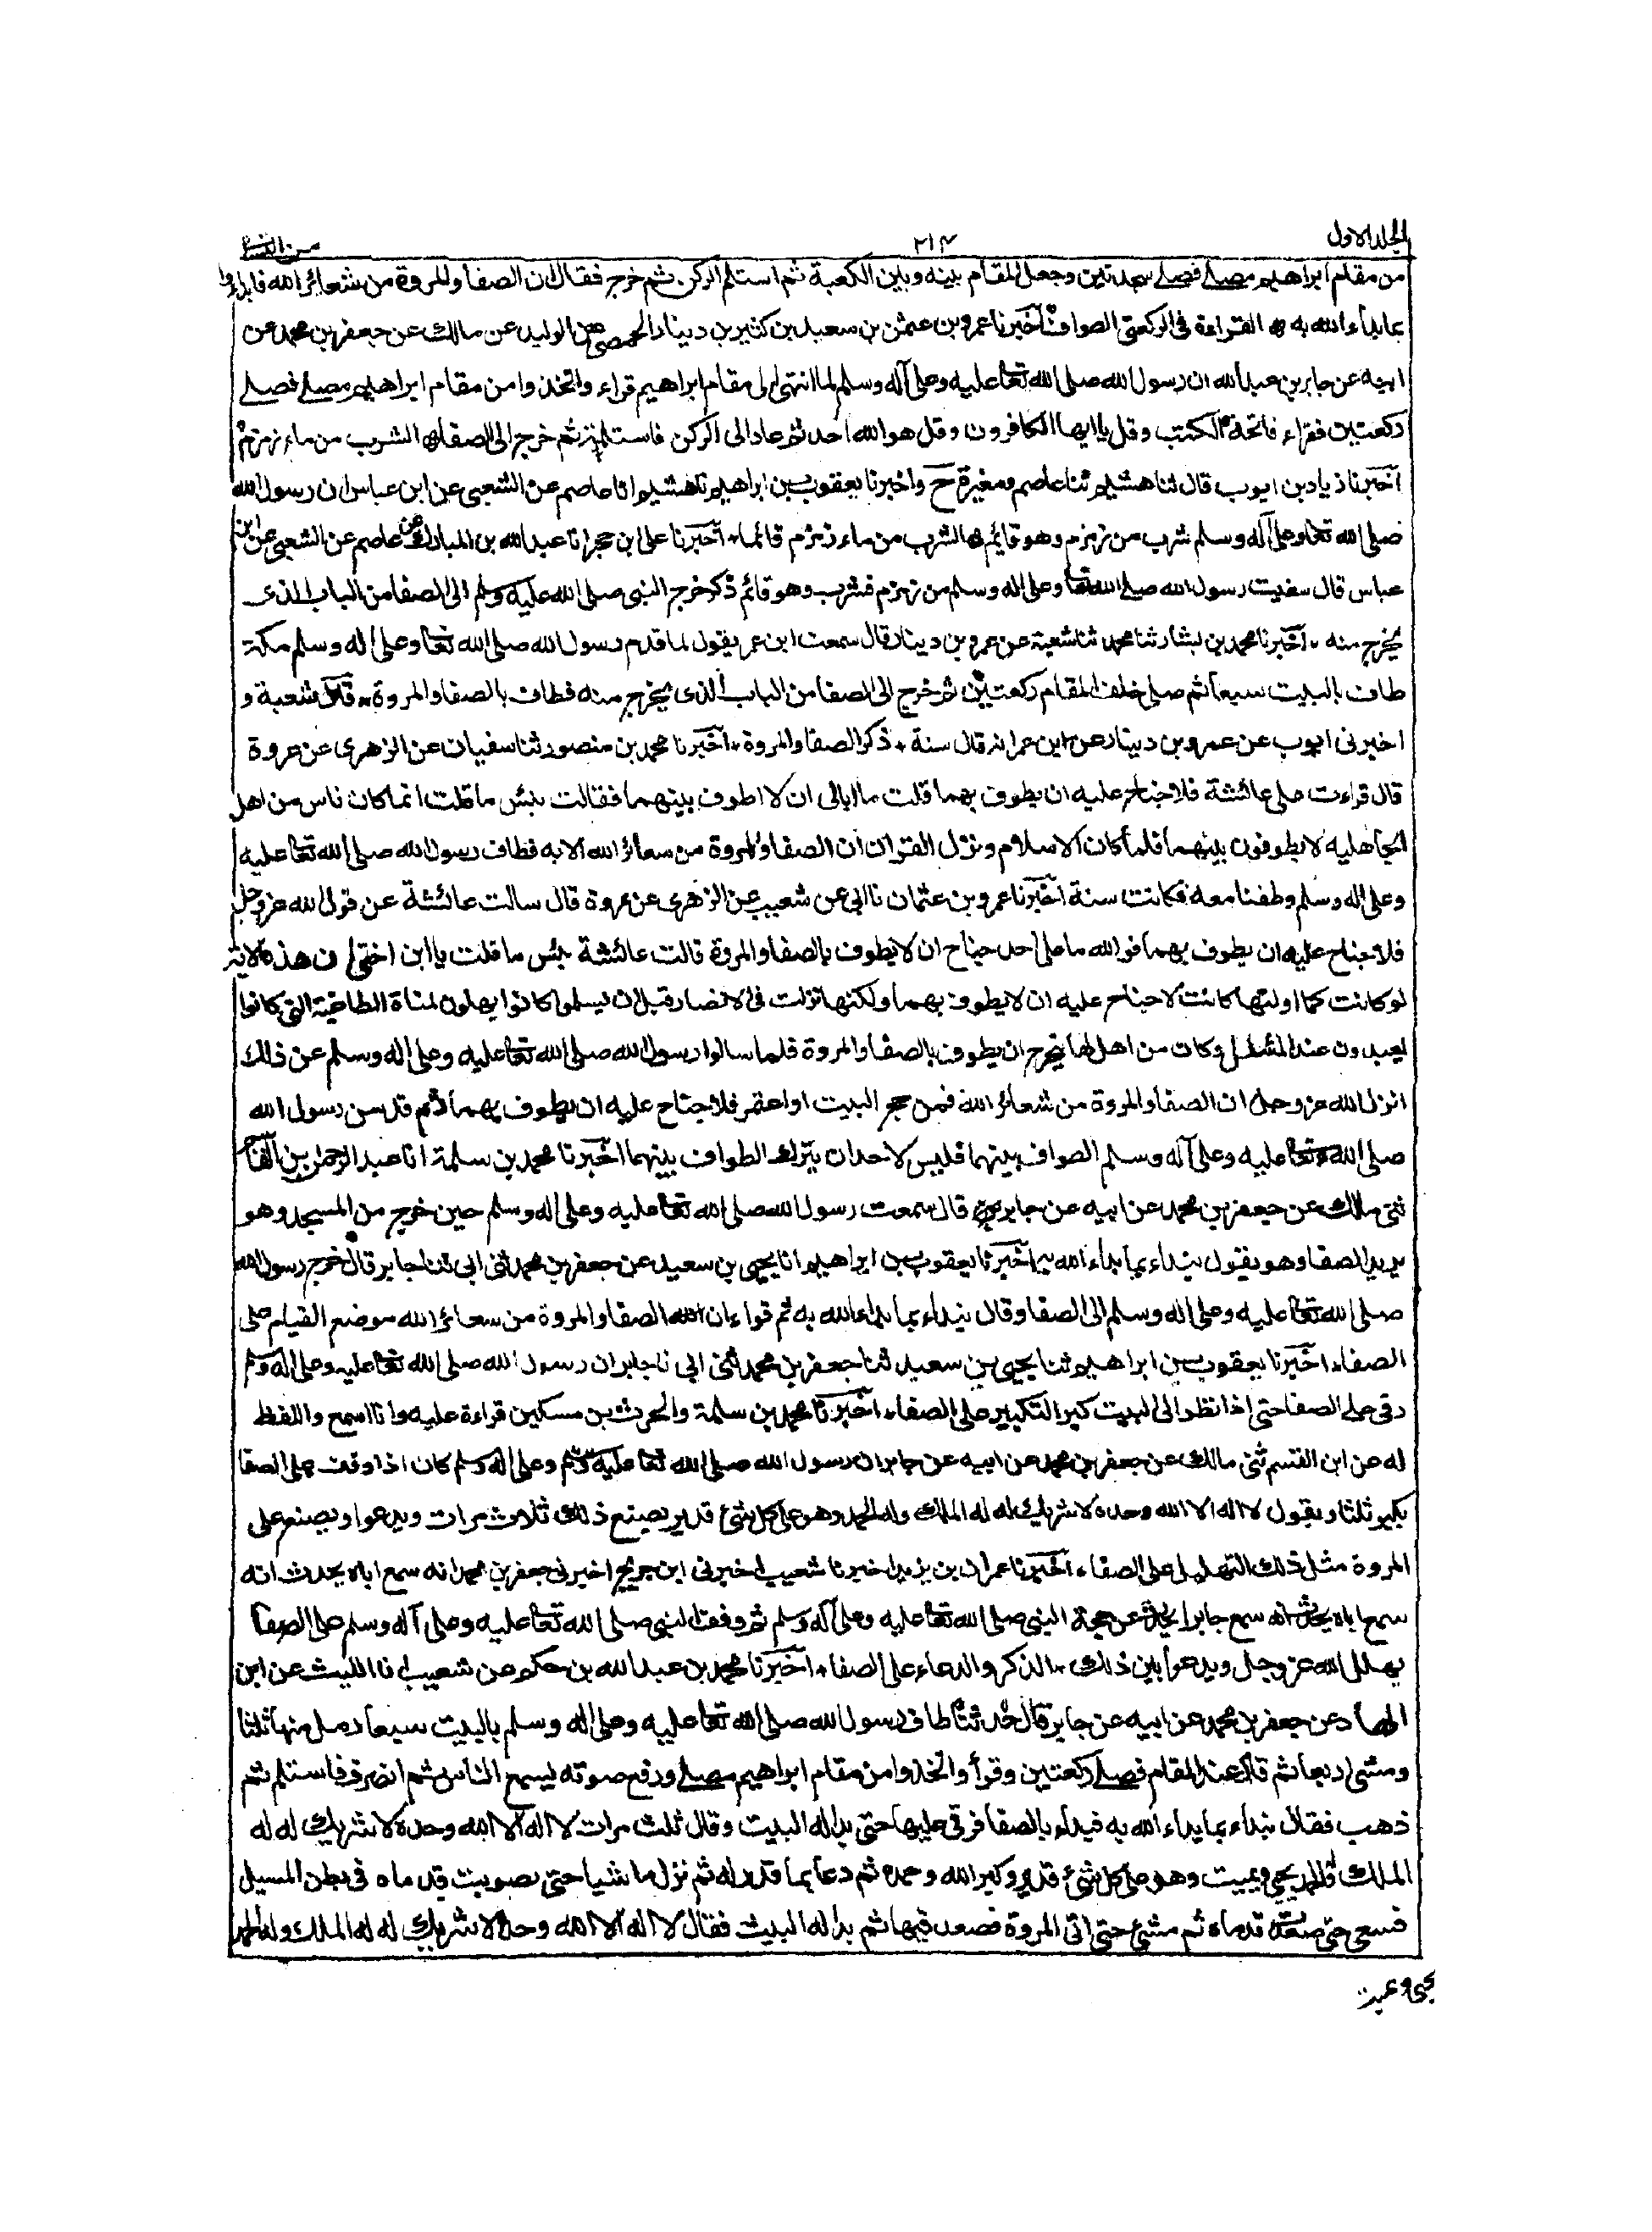 الجلد الاول ٢١٤ من النسا
من مقام ابراهيم مصلے فصلے سجدتين وجعل المقام بينه وبين الكعبة ثم استلم الركن ثم خرج فقال ان الصفا والمروة من شعائر الله فابدءوا
بما بدأ الله به القراءة فى ركعتى الطواف اخبرنا عمرو بن عثمن بن سعيد بن كثير بن دينار الحمصى عن الوليد عن مالك عن جعفر بن محمد عن
ابيه عن جابر بن عبد الله ان رسول الله صلى الله تعا عليه وعلى آله وسلم لما انتهى الى مقام ابراهيم قراء واتخذوا من مقام ابراهيم مصلے فصلے
ركعتين فقراء فاتحة الكتب وقل يا ايها الكافرون وقل هو الله احد ثم عاد الى الركن فاستلمه ثم خرج الى الصفا الشرب من ماء زمزم
اخبرنا زياد بن ايوب قال ثنا هشيم ثنا عاصم ومغيرة ح واخبرنا يعقوب بن ابراهيم نا هشيم انا عاصم عن الشعبى عن ابن عباس ان رسول الله
صلى الله تعا وعلى آله وسلم شرب من زمزم وهو قائم الشرب من ماء زمزم قائما اخبرنا على ابن حجر انا عبد الله بن المبارك عن عاصم عن الشعبى عن ابن
عباس قال سقيت رسول الله صلے الله تعا وعلى اله وسلم من زمزم فشرب وهو قائم ذكر خرج النبى صلى الله عليه وسلم الى الصفا من الباب الذى
يخرج منه اخبرنا محمد بن بشار ثنا محمد ثنا شعبة عن عمرو بن دينار قال سمعت ابن عمر يقول لما قدم رسول الله صلى الله تعا وعلى اله وسلم مكة
طاف بالبيت سبعا ثم صلى خلف المقام ركعتين ثم خرج الى الصفا من الباب الذى يخرج منه فطاف بالصفا والمروة قال شعبة و
اخبرنى ايوب عن عمرو بن دينار عن ابن عمر انه قال سنة ذكر الصفا والمروة اخبرنا محمد بن منصور ثنا سفيان عن الزهرى عن عروة
قال قراءت على عائشة فلا جناح عليه ان يطوف بهما قلت ما ابالى ان لا اطوف بينهما فقالت بئس ما قلت انما كان ناس من اهل
الجاهليه لا يطوفون بينهما فلما كان الاسلام ونزل القران ان الصفا والمروة من شعائر الله الايه فطاف رسول الله صلى الله تعا عليه
وعلى اله وسلم وطفنا معه فكانت سنة اخبرنا عمرو بن عثمان نا ابى عن شعيب عن الزهرى عن عروة قال سالت عائشة عن قول الله عز وجل
فلا جناح عليه ان يطوف بهما فوالله ما على احد جناح ان لا يطوف بالصفا والمروة قالت عائشة بئس ما قلت يا ابن اختى ان هذه الاية
لو كانت كما اولتها كانت لا جناح عليه ان لا يطوف بهما ولكنها نزلت فى الانصار قبل ان يسلموا كانوا يهلون لمناة الطاغية التى كانوا
يعبدون عند المشلل وكان من اهل لها يتحرج ان يطوف بالصفا والمروة فلما سالوا رسول الله صلى الله تعا عليه وعلى اله وسلم عن ذلك
انزل الله عز وجل ان الصفا والمروة من شعائر الله فمن حج البيت او اعتمر فلا جناح عليه ان يطوف بهما ثم قد سن رسول الله
صلى الله تعا عليه وعلى آله وسلم الطواف بينهما فليس لاحد ان يترك الطواف بينهما اخبرنا محمد بن سلمة انا عبد الرحمن بن القاسم
ثنى مالك عن جعفر بن محمد عن ابيه عن جابر قال سمعت رسول الله صلى الله تعا عليه وعلى اله وسلم حين خرج من المسجد وهو
يريد الصفا وهو يقول نبداء بما بداء الله به اخبرنا يعقوب بن ابراهيم انا يحيى بن سعيد عن جعفر بن محمد ثنى ابى ثنا جابر قال خرج رسول الله
صلى الله تعا عليه وعلى اله وسلم الى الصفا وقال نبداء بما بداء الله به ثم قراء ان الصفا والمروة من شعائر الله موضع القيام على
الصفا اخبرنا يعقوب بن ابراهيم ثنا يحيى بن سعيد ثنا جعفر بن محمد ثنى ابى نا جابر ان رسول الله صلى الله تعا عليه وعلى اله وسلم
رقى على الصفا حتى اذا نظر الى البيت كبر التكبير على الصفا اخبرنا محمد بن سلمة والحرث بن مسكين قراءة عليه وانا اسمع واللفظ
له عن ابن القسم ثنى مالك عن جعفر بن محمد عن ابيه عن جابر ان رسول الله صلى الله تعا عليه وعلى اله وسلم كان اذا وقف على الصفا
يكبر ثلثا ويقول لا اله الا الله وحده لا شريك له له الملك وله الحمد وهو على كل شئ قدير يصنع ذلك ثلاث مرات ويدعوا ويصنع على
المروة مثل ذلك التهليل على الصفا اخبرنا عمران بن يزيد اخبرنا شعيب اخبرنى ابن جريج اخبرنى جعفر بن محمد انه سمع اباه يحدث انه
سمع اباه يحدث انه سمع جابرا يحدث عن حجة النبى صلى الله تعا عليه وعلى آله وسلم ثم وقف النبى صلى الله تعا عليه وعلى آله وسلم على الصفا
يهلل الله عز وجل ويدعوا بين ذلك الذكر والدعاء على الصفا اخبرنا محمد بن عبد الله بن حكم عن شعيب انا الليث عن ابن
الهاد عن جعفر بن محمد عن ابيه عن جابر قال طاف رسول الله صلى الله تعا عليه وعلى اله وسلم بالبيت سبعا رمل منها ثلثا
ومشى اربعا ثم قام عند المقام فصلے ركعتين وقرأ واتخذوا من مقام ابراهيم مصلے ورفع صوته يسمع الناس ثم انصرف فاستلم ثم
ذهب فقال نبداء بما بداء الله به فبداء بالصفا فرقى عليها حتى بدا له البيت وقال ثلث مرات لا اله الا الله وحده لا شريك له له
الملك وله الحمد يحيى ويميت وهو على كل شئ قدير وكبر الله وحمده ثم دعا بما قدر له ثم نزل ماشيا حتى تصوبت قدماه فى بطن المسيل
فسعى حتى صعدت قدماه ثم مشى حتى اتى المروة فصعد فيها ثم بدا له البيت فقال لا اله الا الله وحده لا شريك له له الملك وله الحمد